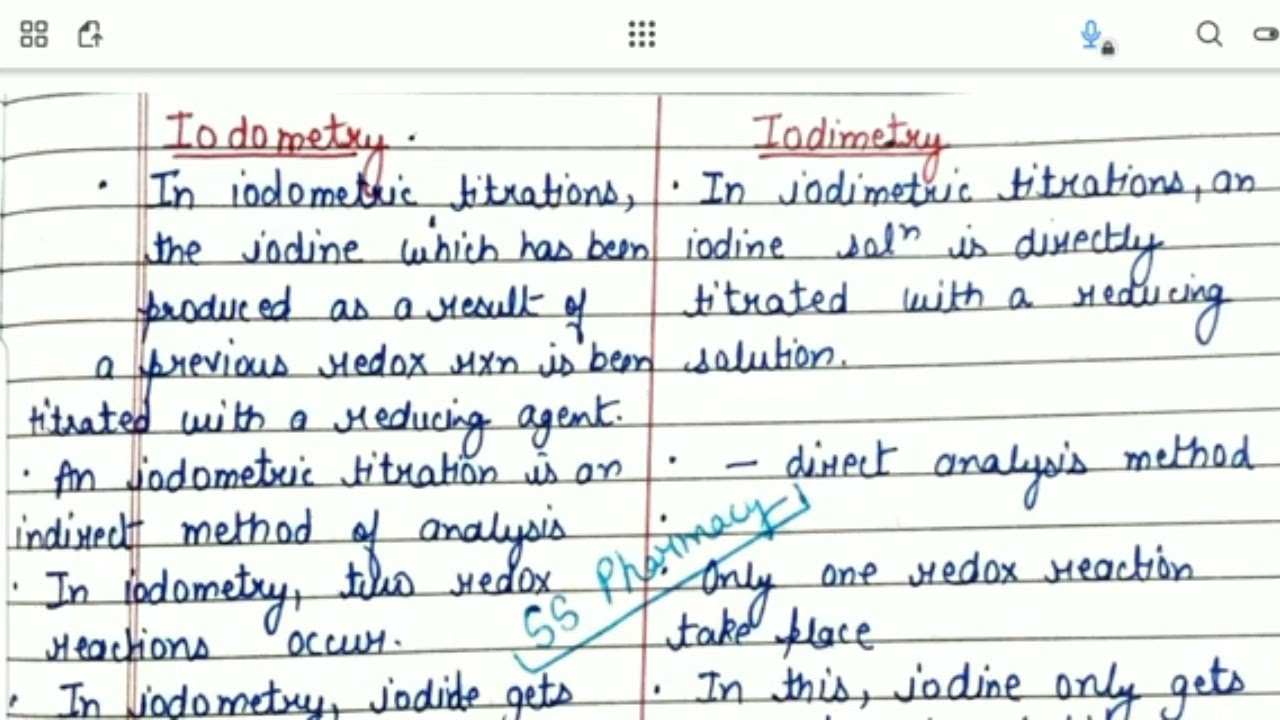 Iodometry.
• In iodometric titrations,
the iodine which has been
produced as a result of
a previous redox rxn is been
titrated with a reducing agent.
• An iodometric titration is an
indirect method of analysis
• In iodometry, two redox
reactions occur.
• In iodometry, iodide gets
Iodimetry
• In iodimetric titrations, an
iodine solⁿ is directly
titrated with a reducing
solution.
• — direct analysis method
•
• Only one redox reaction
take place
• In this, iodine only gets
SS Pharmacy